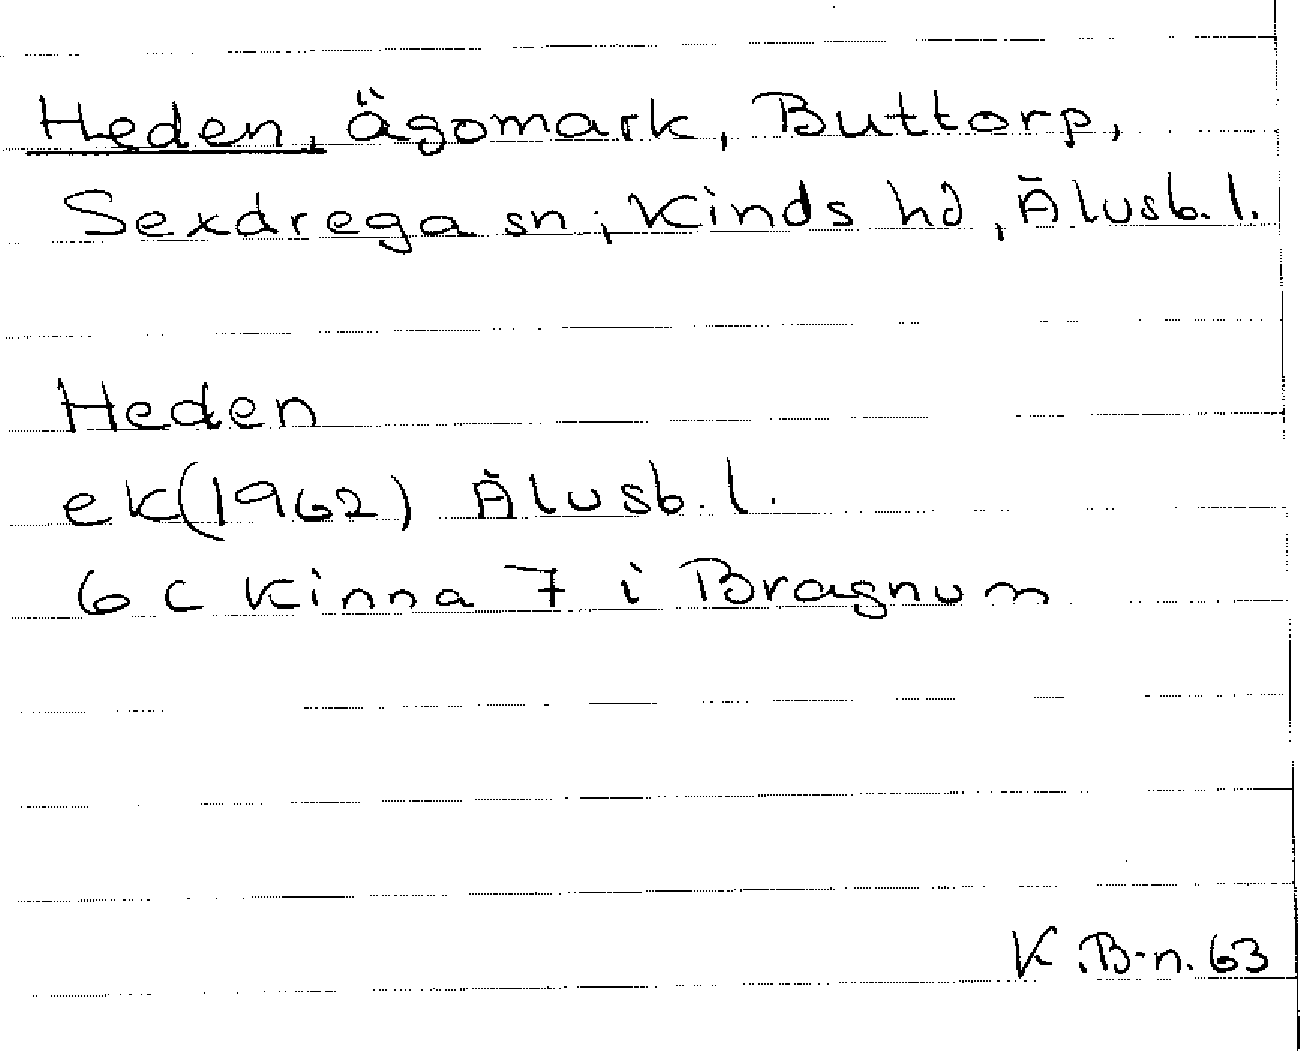 Heden, ägomark, Buttorp,
Sexdrega sn, Kinds hd, Älvsb. l.
Heden
ek (1962) Älvsb. l.
6 c Kinna 7 i Bragnum
K. B-n. 63